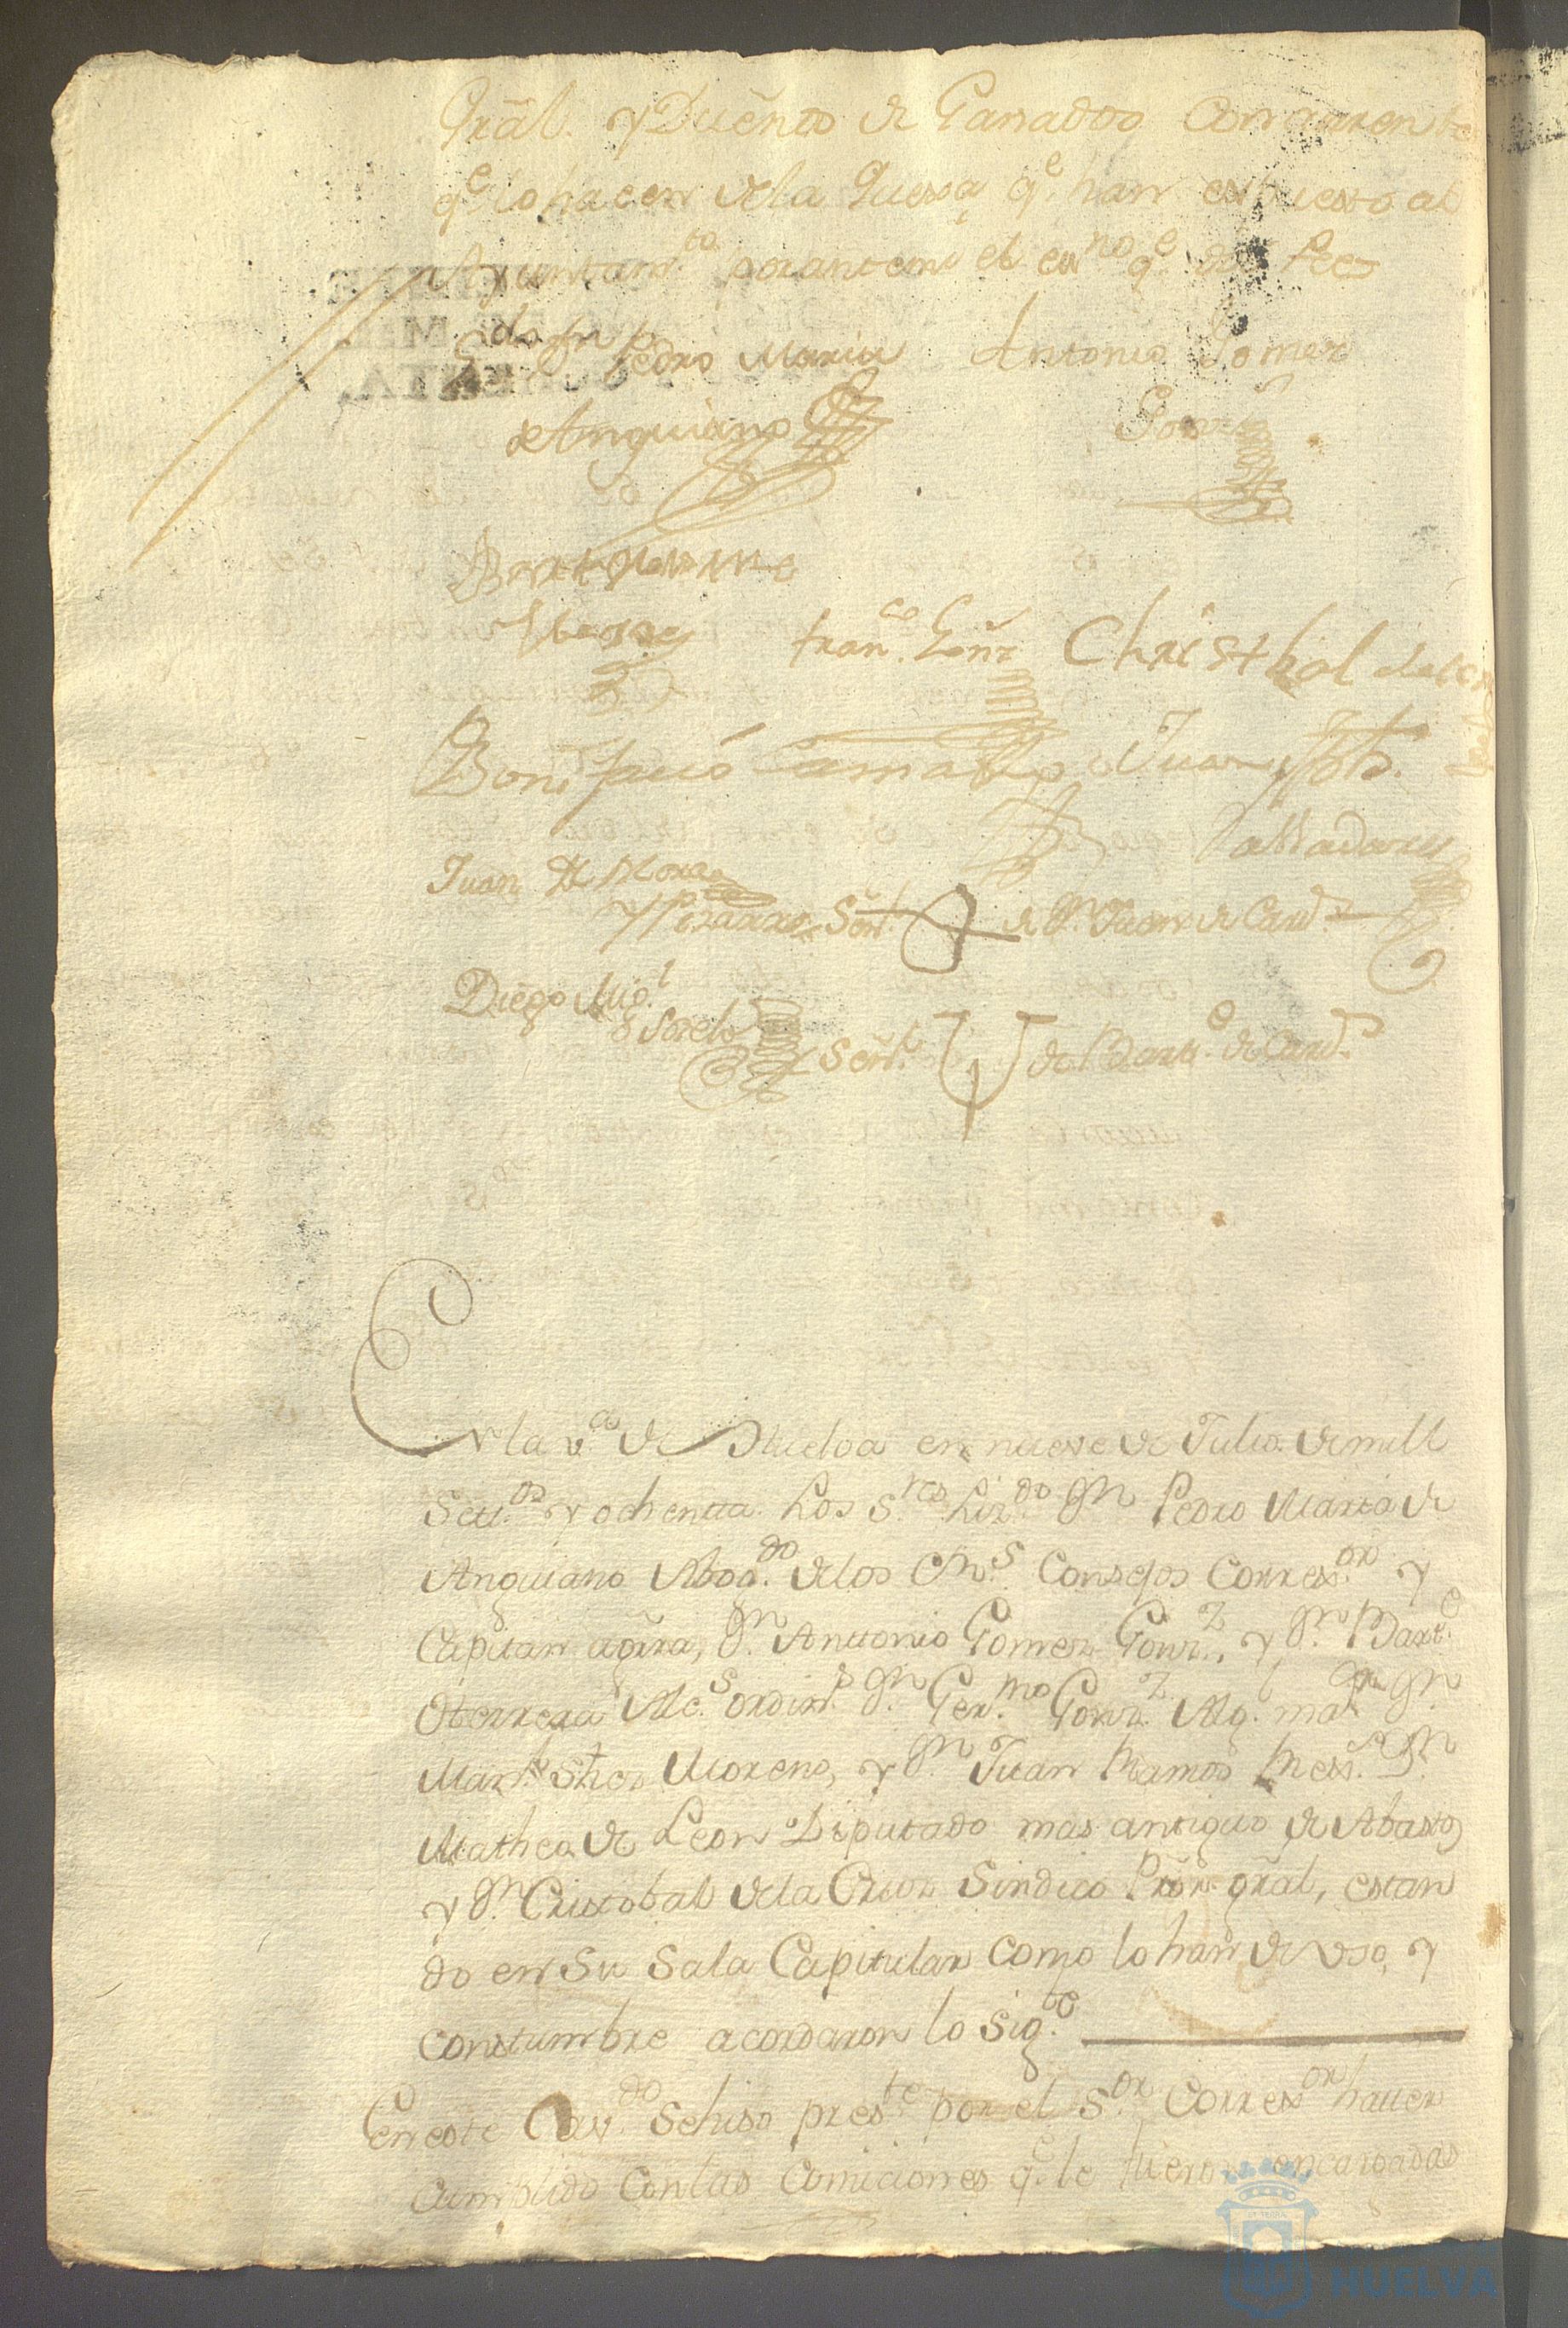 Grãl. y Dueños de Ganados
qe. lo hacen de la Quexa qe. han expuesto al
Ayuntam.to por ante mi el esc.no qe. doi fee
Lizdo. Dn. Pedro Maria Antonio Gomez
de Anguiano Gonz
Bartholome
Fran.co Gonz Christobal dela Cruz
Bonifacio Camacho Juan
Valladares
Juan de Mora
y Pizarro Señl. de Dn. Juan de Card.
Diego Migl.
Sorelo Señl. de Barte. de Card.
En la va. de Huelva en nueve de Julio de mill
Setts. y ochentta. Los Sres. Lizdo. Dn. Pedro Maria de
Anguiano Abogdo. de los Rs. Consejos Correxor. y
Capitan aGrra, Dn. Anttonio Gomez Gonz. y Dn. Barte.
Herrera Alcs. ordins. Dn. Germo. Gonz. Alg. mar. Dn.
Marn. Shez Moreno, y Dn. Juan Ramos Dn.
Matheo de Leon Diputado mas antiguo de Abastos
y Dn. Cristobal dela Cruz Sindico Pror. gral, estan
do en su Sala Capitular como lo han de uso, y
constumbre acordaron lo Sigte.
En este Cavdo. se hiso preste. por el Sor. Correxor. haver
Cumplido con las Comiciones qe. le fueron encargadas
HUELVA